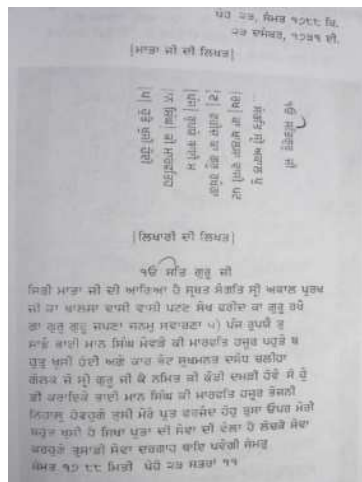 ਪੋਹ ੨੩, ਸੰਮਤ ੧੭੮੮ ਬਿ.
੨੩ ਦਸੰਬਰ, ੧੭੩੧ ਈ.
|ਮਾਤਾ ਜੀ ਦੀ ਲਿਖਤ|
ੴ ਸਤਿਗੁਰੂ ਜੀ
|ਲਿਖਾਰੀ ਦੀ ਲਿਖਤ|
ੴ ਸਤਿ ਗੁਰੂ ਜੀ
ਸ੍ਰੀ ਮਾਤਾ ਜੀ ਦੀ ਆਗਿਆ ਹੈ ਸ੍ਰਬਤ ਸੰਗਤਿ ਸ੍ਰੀ ਅਕਾਲ ਪੁਰਖ
ਜੀ ਕਾ ਖਾਲਸਾ ਵਾਸੀ ਵਾਸੀ ਪਟਣ ਸੇਖ ਫਰੀਦ ਕਾ ਗੁਰੂ ਰਖੈ
ਗਾ ਗੁਰੂ ਗੁਰੂ ਜਪਣਾ ਜਨਮੁ ਸਵਾਰਣਾ ੫) ਪੰਜ ਰੁਪਯੈ ਤੁ
ਸਾਡੇ ਭਾਈ ਮਾਨ ਸਿੰਘ ਮੇਵੜੇ ਕੀ ਮਾਰਫਤਿ ਹਜੂਰ ਪਹੁਤੇ ਬ
ਹੁਤੁ ਖੁਸੀ ਹੋਈ ਅਗੇ ਕਾਰ ਭੇਟ ਸੁਖਮਨਤ ਦਸੰਧ ਚਲੀਹਾ
ਗੋਲਕ ਜੋ ਸ੍ਰੀ ਗੁਰੂ ਜੀ ਕੇ ਨਮਿਤ ਕੀ ਕੌਡੀ ਦਮੜੀ ਹੋਵੈ ਸੋ ਹੁੰ
ਡੀ ਕਰਾਇਕੇ ਭਾਈ ਮਾਨ ਸਿੰਘ ਕੀ ਮਾਰਫਤਿ ਹਜੂਰ ਭੇਜਣੀ
ਨਿਹਾਲੁ ਹੋਵਹੁਗੇ ਤੁਸੀ ਮੇਰੇ ਪੁਤ ਫਰਜੰਦ ਹੋਹੁ ਤੁਸਾ ਉਪਰ ਮੇਰੀ
ਬਹੁਤ ਖੁਸੀ ਹੈ ਸਿਖਾ ਪੁਤਾ ਦੀ ਸੇਵਾ ਦੀ ਵੇਲਾ ਹੈ ਲੋਚਕੇ ਸੇਵਾ
ਕਰਹੁਗੇ ਤੁਸਾਡੀ ਸੇਵਾ ਦਰਗਾਹ ਥਾਇ ਪਵੇਗੀ ਸੰਮਤੁ
ਸੰਮਤ ੧੭ ੮੮ ਮਿਤੀ ਪੋਹੋ ੨੩ ਸਤਰਾਂ ੧੧